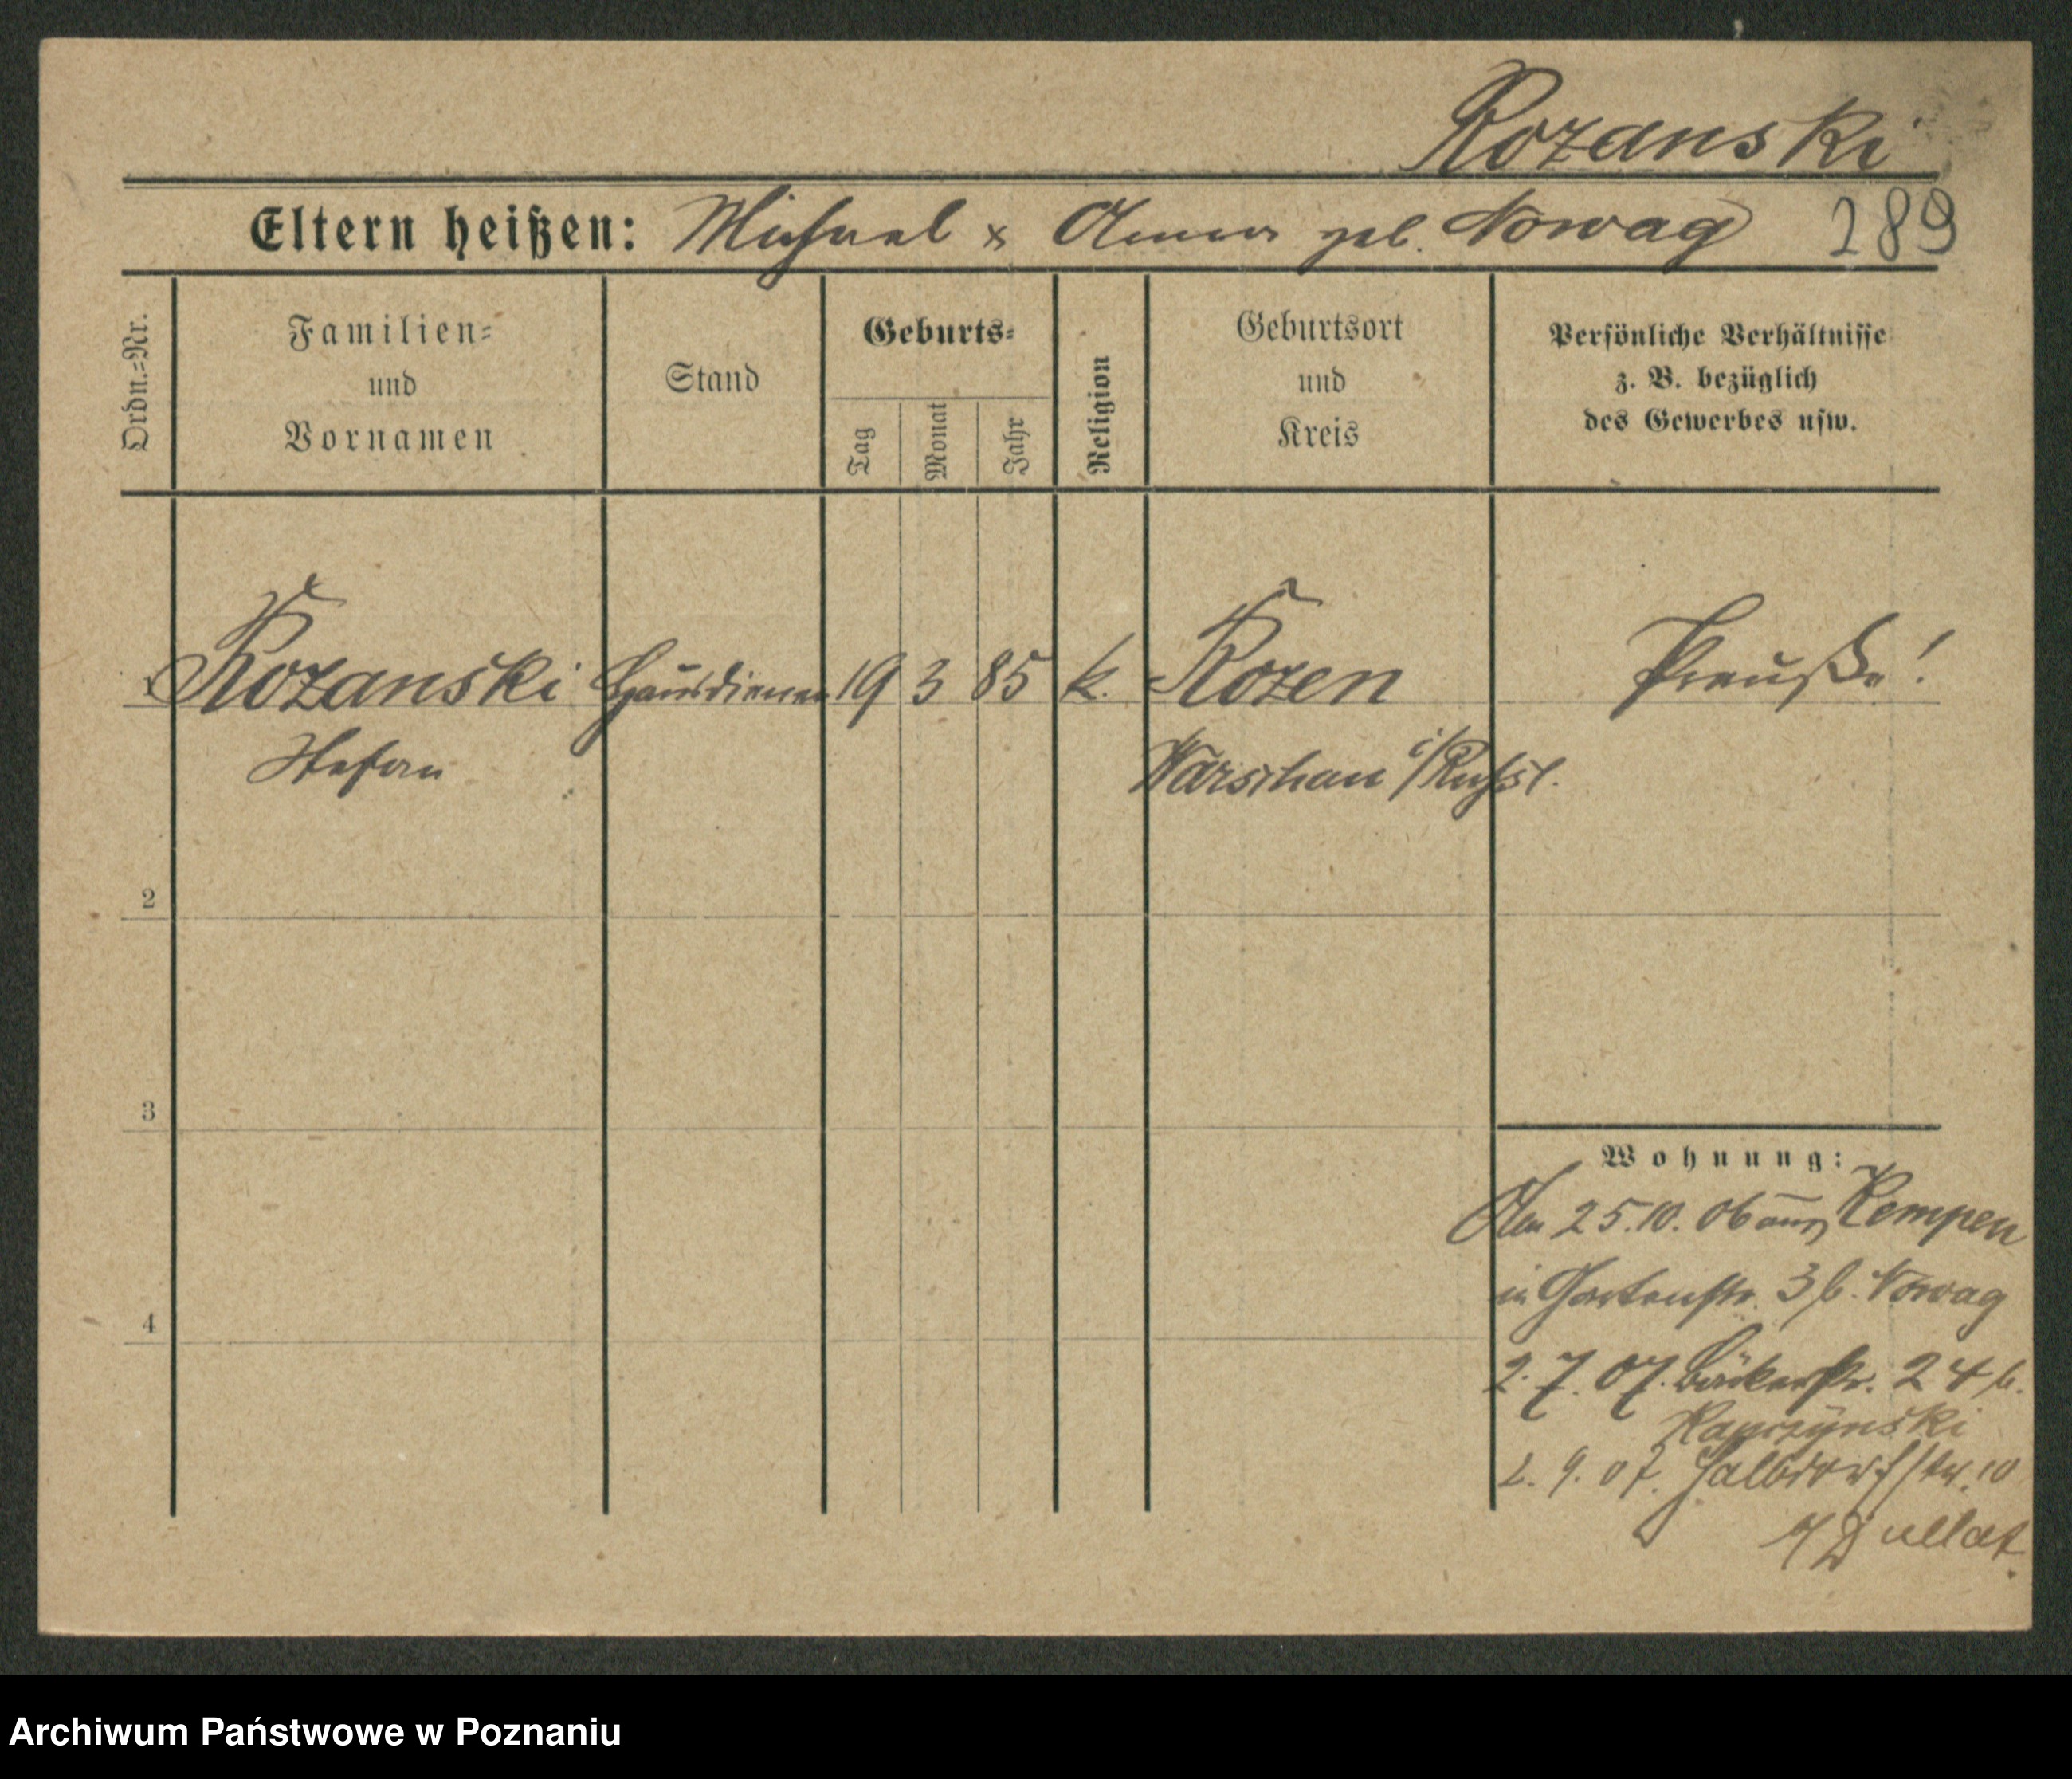 Rozanski
Eltern heißen: Michael & Anna geb. Nowag 289
Ordn.-Nr.
Familien-
und
Vornamen
Stand
Geburts-
Tag
Monat
Jahr
Religion
Geburtsort
und
Kreis
Persönliche Verhältnisse
z. B. bezüglich
des Gewerbes usw.
1 Rozanski Hausdiener 19 3 85 k. Rozen Preuße!
Stefan Warschau i/Russl.
2
3
4
Wohnung:
Am 25.10.06 aus Kempen
in Gartenstr. 3 b. Nowag
2.7.07. Bäckerstr. 24 b.
Kaprzynski
2.9.07. Halbdorfstr. 10
Archiwum Państwowe w Poznaniu